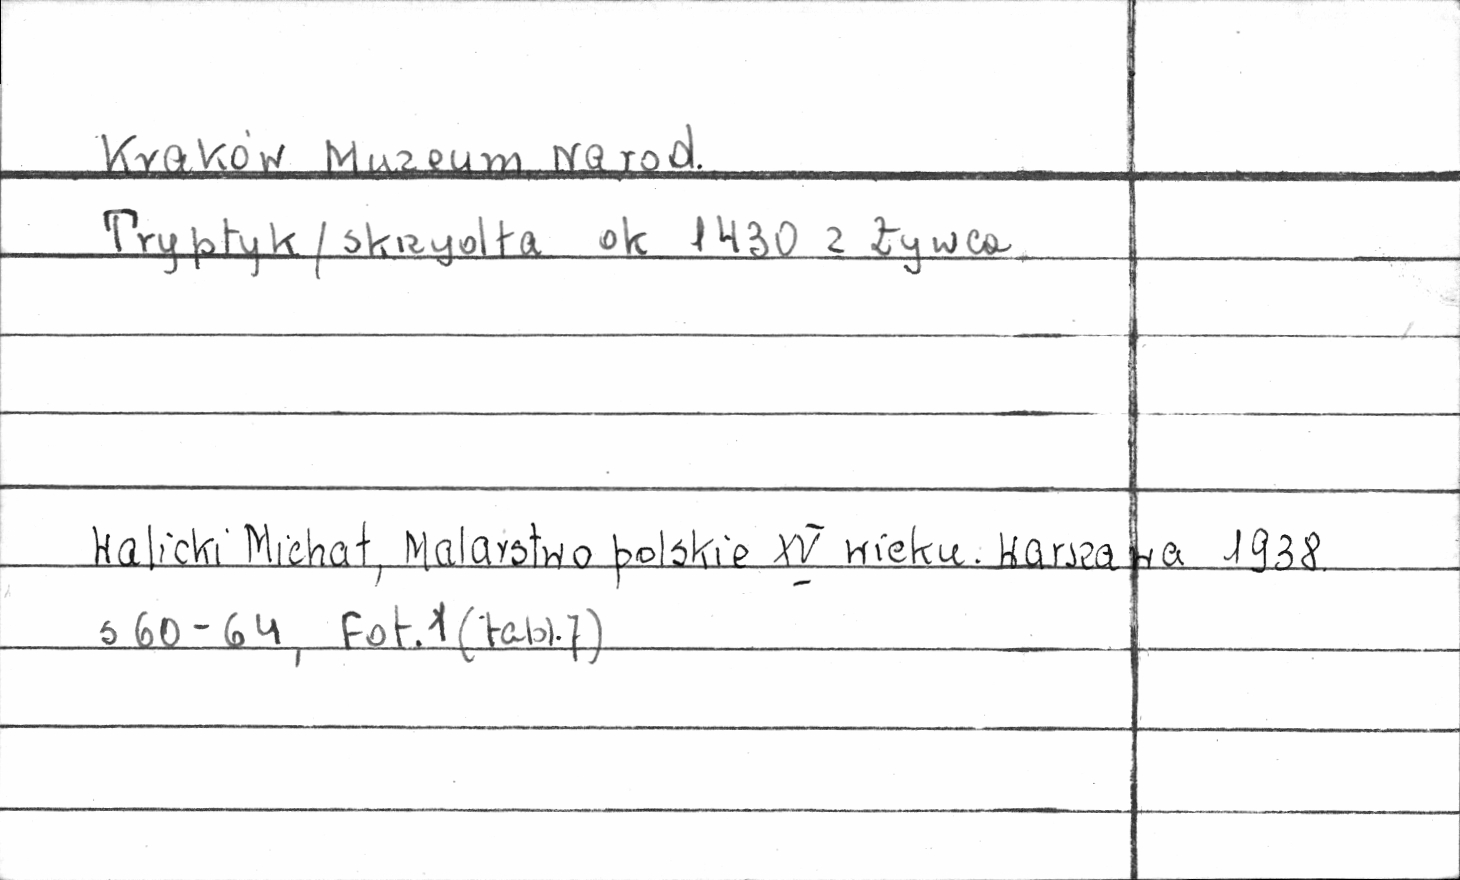 Kraków Muzeum Narod.
Tryptyk / skrzydła ok 1430 z Żywca
Walicki Michał, Malarstwo polskie XV wieku. Warszawa 1938
s 60-64, Fot. 1 (tabl. 7)